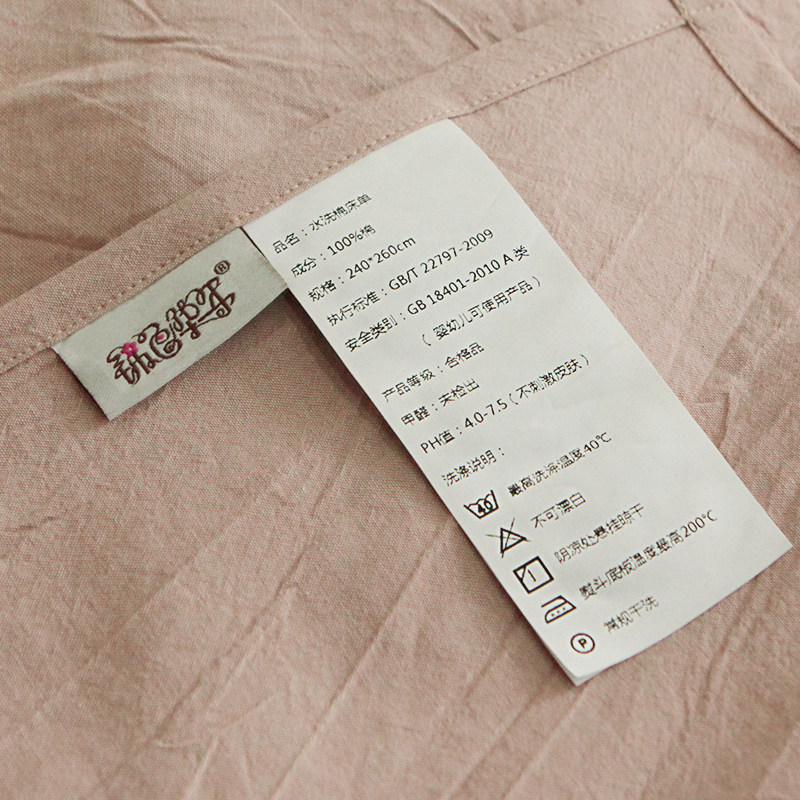 品名：水洗棉床单
成分：100%棉
规格：240*260cm
执行标准：GB/T 22797-2009
安全类别：GB 18401-2010 A 类
（ 婴幼儿可使用产品）
产品等级：合格品
甲醛：未检出
PH值：4.0-7.5（不刺激皮肤）
洗涤说明：
40 最高洗涤温度40℃
不可漂白
阴凉处悬挂晾干
熨斗底板温度最高200℃
P 常规干洗
®